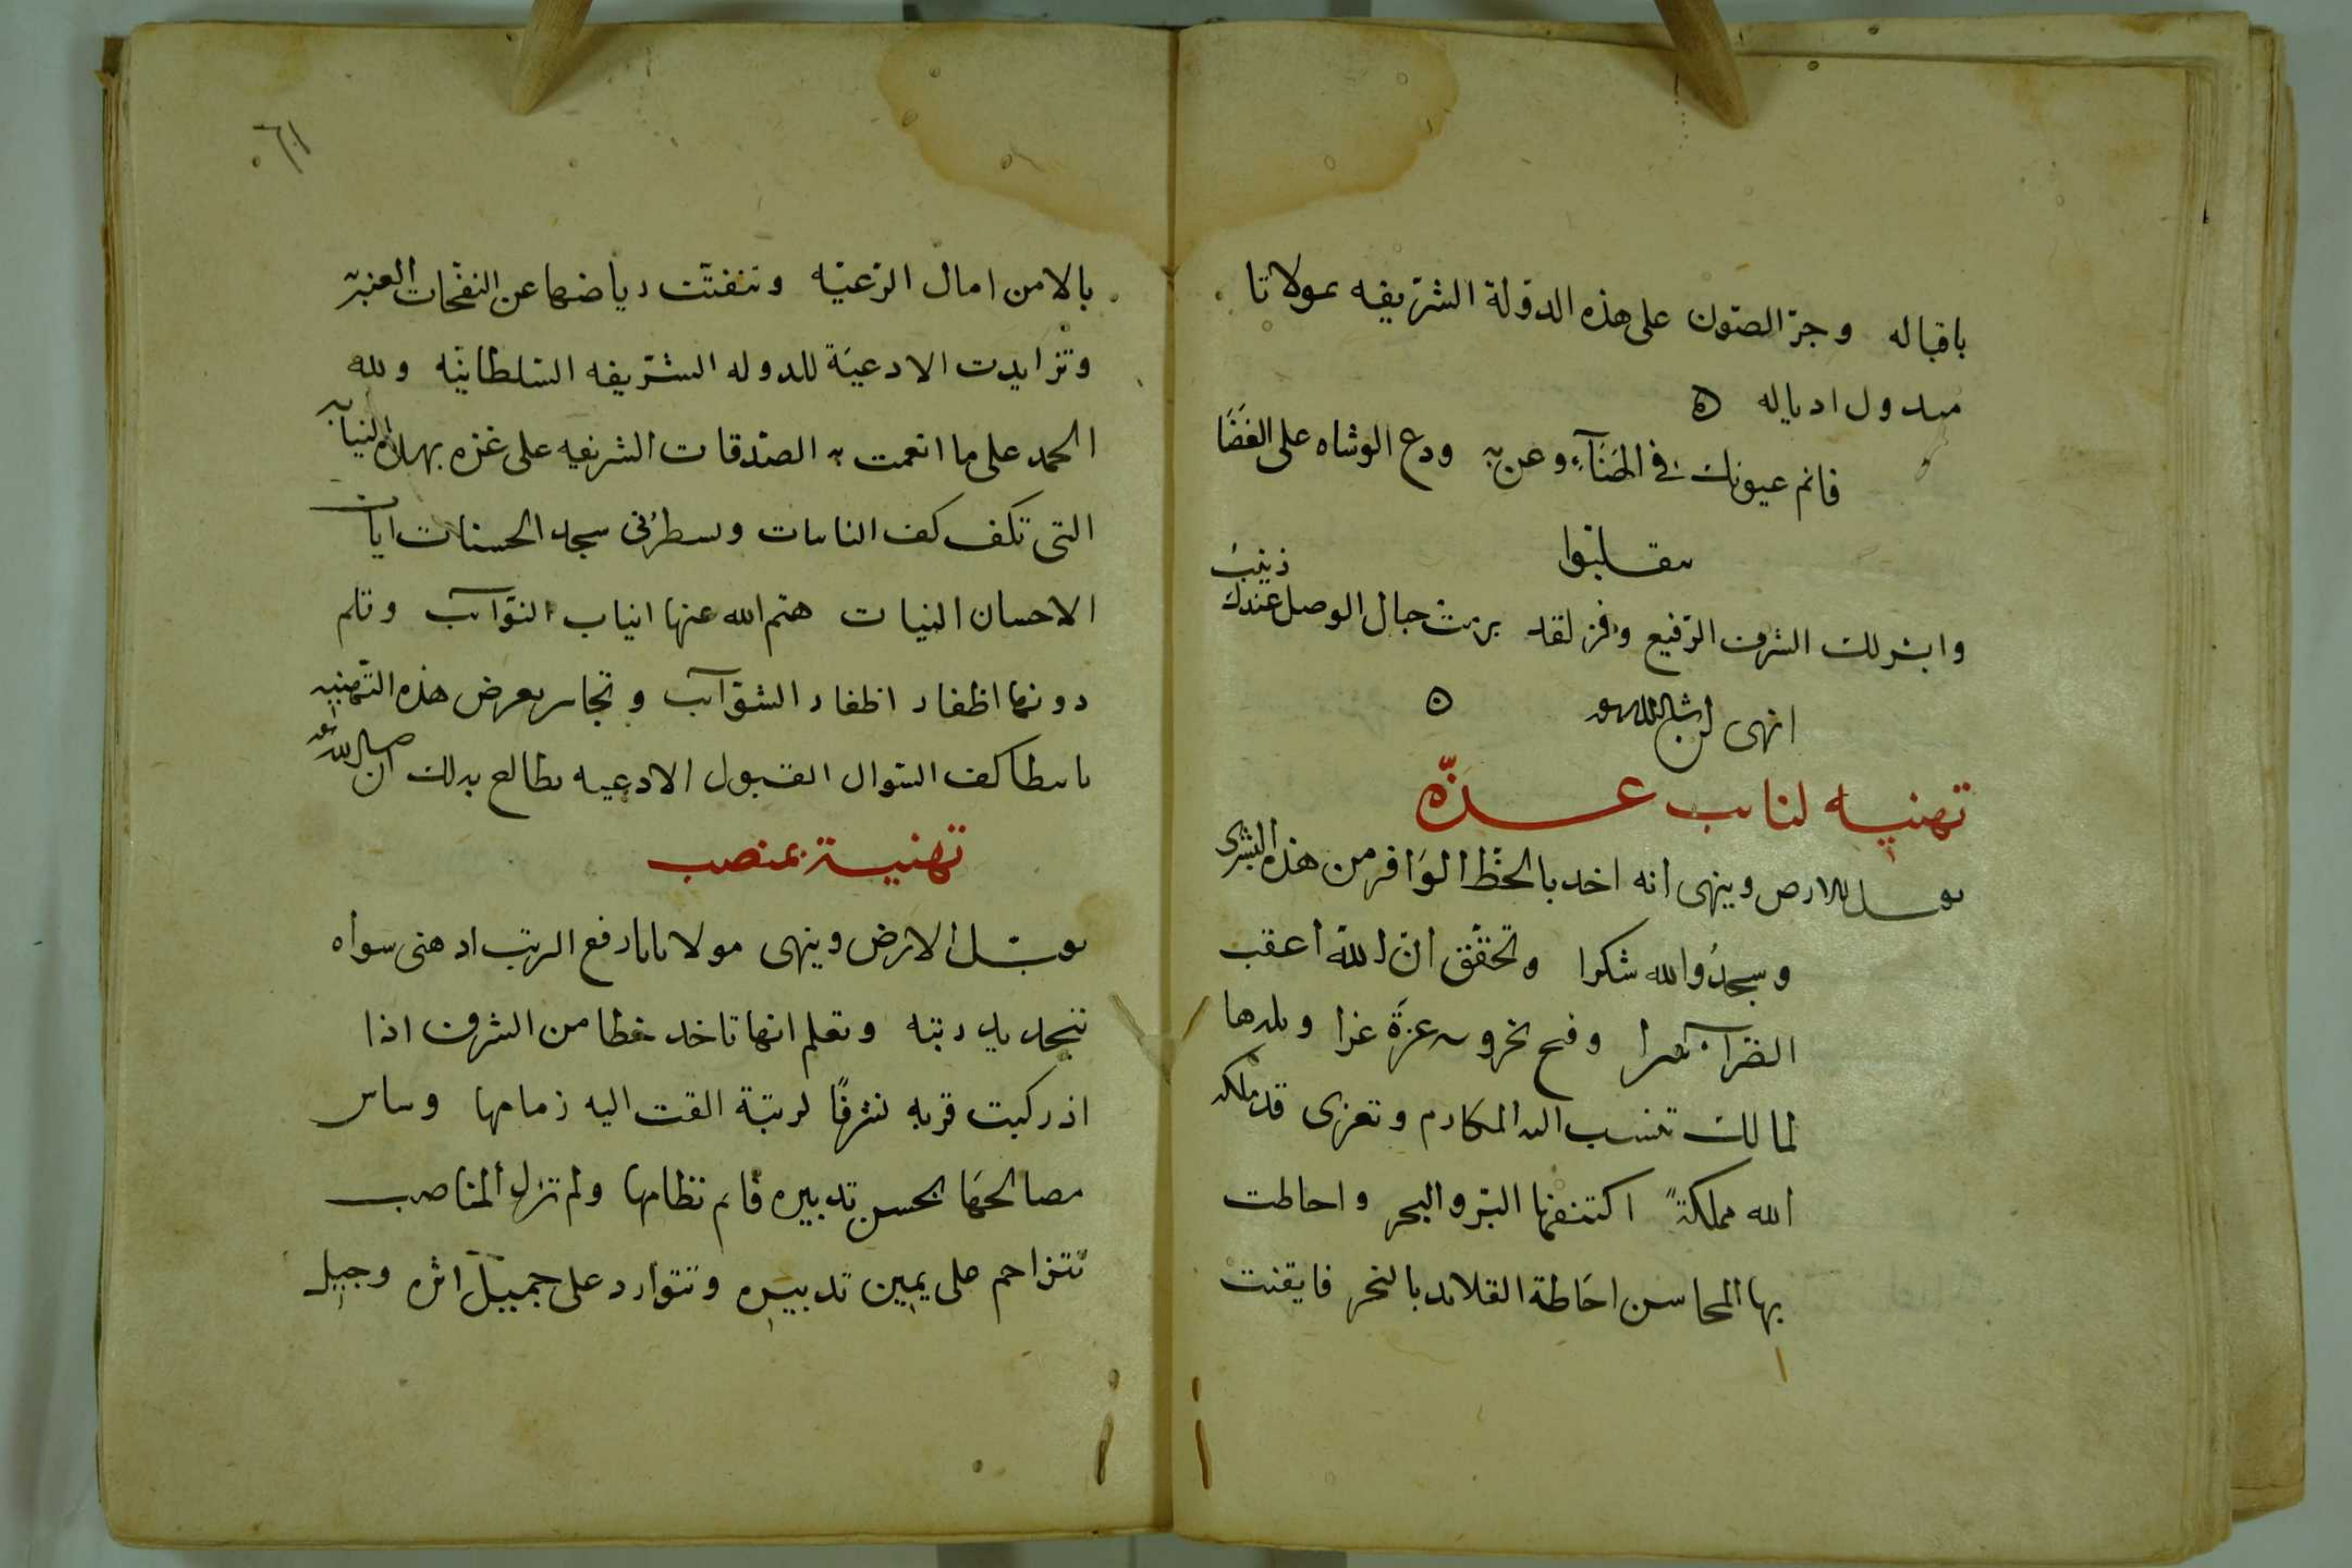 باقباله وجرّ الصّون على هذه الدولة الشريفه بمولانا
مبدول ادياله ه
فانم عيونك في الهَنَآءِ وعن به ودع الوشاه على الغَضَا
يتقلبّوا
وابشر لك الشرف الرّفيع وفز لقد برمت حبال الوصل عندك زينبُ
انهى ان شا الله تعالى ه
تهنيه لنايب غــزّه
يقبــل الارض وينهى انه اخد بالحظّ الوَافر من هذه البشرى
وسجدُوا لله شكرا وتحقّق انّ اللهَ اعقب
الضّرآء يسرا وفتح بخروسه غزّة غرا وبلدها
لمالك تنسب اليه المكارم وتعزى قد ملكه
الله مملكةً اكتنفها البرّ والبحر واحاطت
بها المحاسن احَاطة القلائد بالنحر فايقنت
٦١
بالامن امال الرّعيّه وتنفسّت رياضها عن النفحات العنبريّه
وتزايدت الادعيَة للدوله الشّريفه السّلطانيّه ولله
الحمد على ما انعمت به الصّدقات الشريفه على غزه بهذه النيابه
التى تكف كف النايبات وسطرُ فى سجل الحسنات ايات
الاحسان البنيات هتم الله عنها انياب النوّآئب وقلم
دونها اظفار اظفار الشوّآئب وتجاسر بعرض هذه التّهنيه
باسطا كف السّوال القبول الادعيه يطالع بدلك ان شا الله تعالى
تهنيــة بمنصب
يقبّــل الارض وينهى مولانا بارفع الرتب اد هنى سواه
بتجديد رتبه وتعلم انها تاخد حظا من الشرف اذا
اذ ركبت قربه شرفًا لرتبّة القت اليه زمامها وساس
مصالحهَا بحسن تدبيره قايم نظامها ولم تزل المناصب
تتزاحم على يمين تدبيره وتتوارد على جميل اثره وجبل